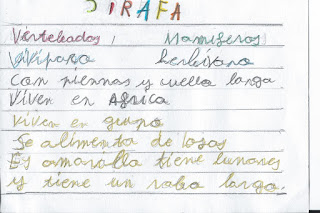 JIRAFA
Vertebados, Mamiferos
Vivíparo herbívoro
Con piernas y cuello largo
Viven en Africa
Viven en grupo
Se alimenta de
Es amarilla tiene lunares
y tiene un rabo largo.